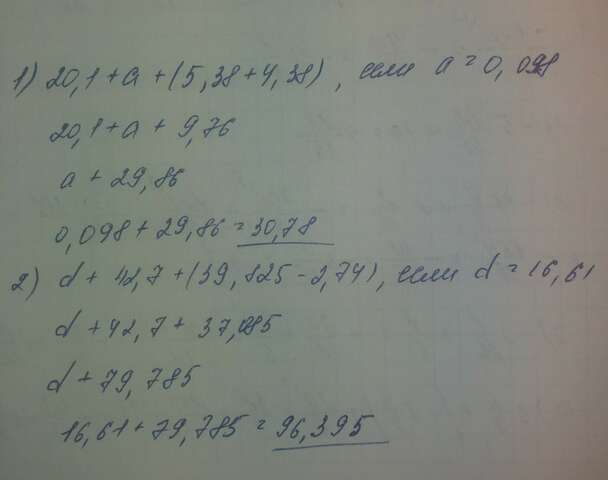 1) 20,1 + a + (5,38 + 4,38), если a = 0,098
20,1 + a + 9,76
a + 29,86
0,098 + 29,86 = 30,78
2) d + 42,7 + (39,825 - 2,74), если d = 16,61
d + 42,7 + 37,085
d + 79,785
16,61 + 79,785 = 96,395